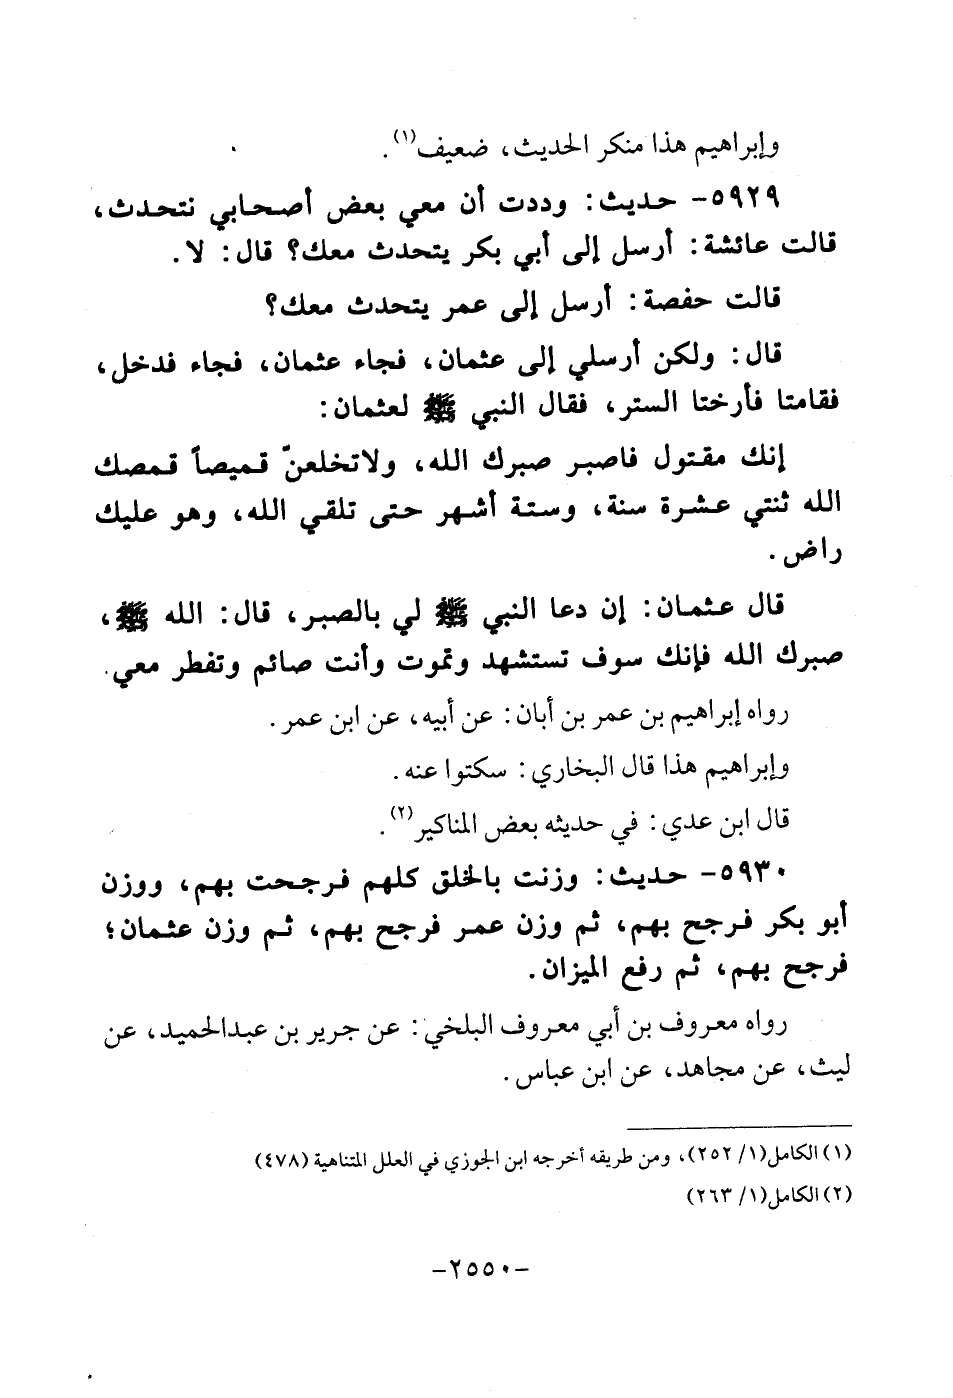 وإبراهيم هذا منكر الحديث، ضعيف(١).
٥٩٢٩- حديث: وددت أن معي بعض أصحابي نتحدث،
قالت عائشة: أرسل إلى أبي بكر يتحدث معك؟ قال: لا.
قالت حفصة: أرسل إلى عمر يتحدث معك؟
قال: ولكن أرسلي إلى عثمان، فجاء عثمان، فجاء فدخل،
فقامتا فأرختا الستر، فقال النبي ﷺ لعثمان:
إنك مقتول فاصبر صبرك الله، ولاتخلعنّ قميصاً قمصك
الله ثنتي عشرة سنة، وستة أشهر حتى تلقي الله، وهو عليك
راض.
قال عثمان: إن دعا النبي ﷺ لي بالصبر، قال: الله ﷺ،
صبرك الله فإنك سوف تستشهد وتموت وأنت صائم وتفطر معي.
رواه إبراهيم بن عمر بن أبان: عن أبيه، عن ابن عمر.
وإبراهيم هذا قال البخاري: سكتوا عنه.
قال ابن عدي: في حديثه بعض المناكير(٢).
٥٩٣٠- حديث: وزنت بالخلق كلهم فرجحت بهم، ووزن
أبو بكر فرجح بهم، ثم وزن عمر فرجح بهم، ثم وزن عثمان؛
فرجح بهم، ثم رفع الميزان.
رواه معروف بن أبي معروف البلخي: عن جرير بن عبدالحميد، عن
ليث، عن مجاهد، عن ابن عباس.
(١) الكامل(١/ ٢٥٢)، ومن طريقه أخرجه ابن الجوزي في العلل المتناهية (٤٧٨)
(٢) الكامل(١/ ٢٦٣)
-٢٥٥٠-